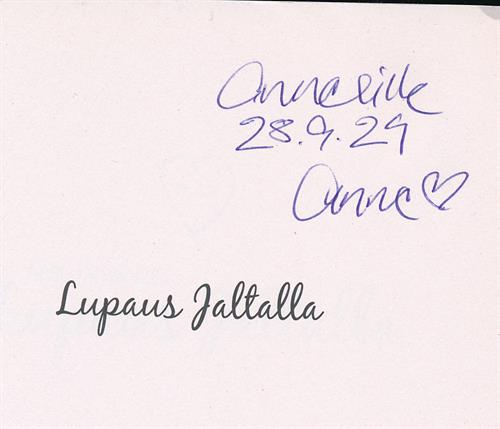 Annelille
28.9.24
Anne♡
Lupaus Jaltalla